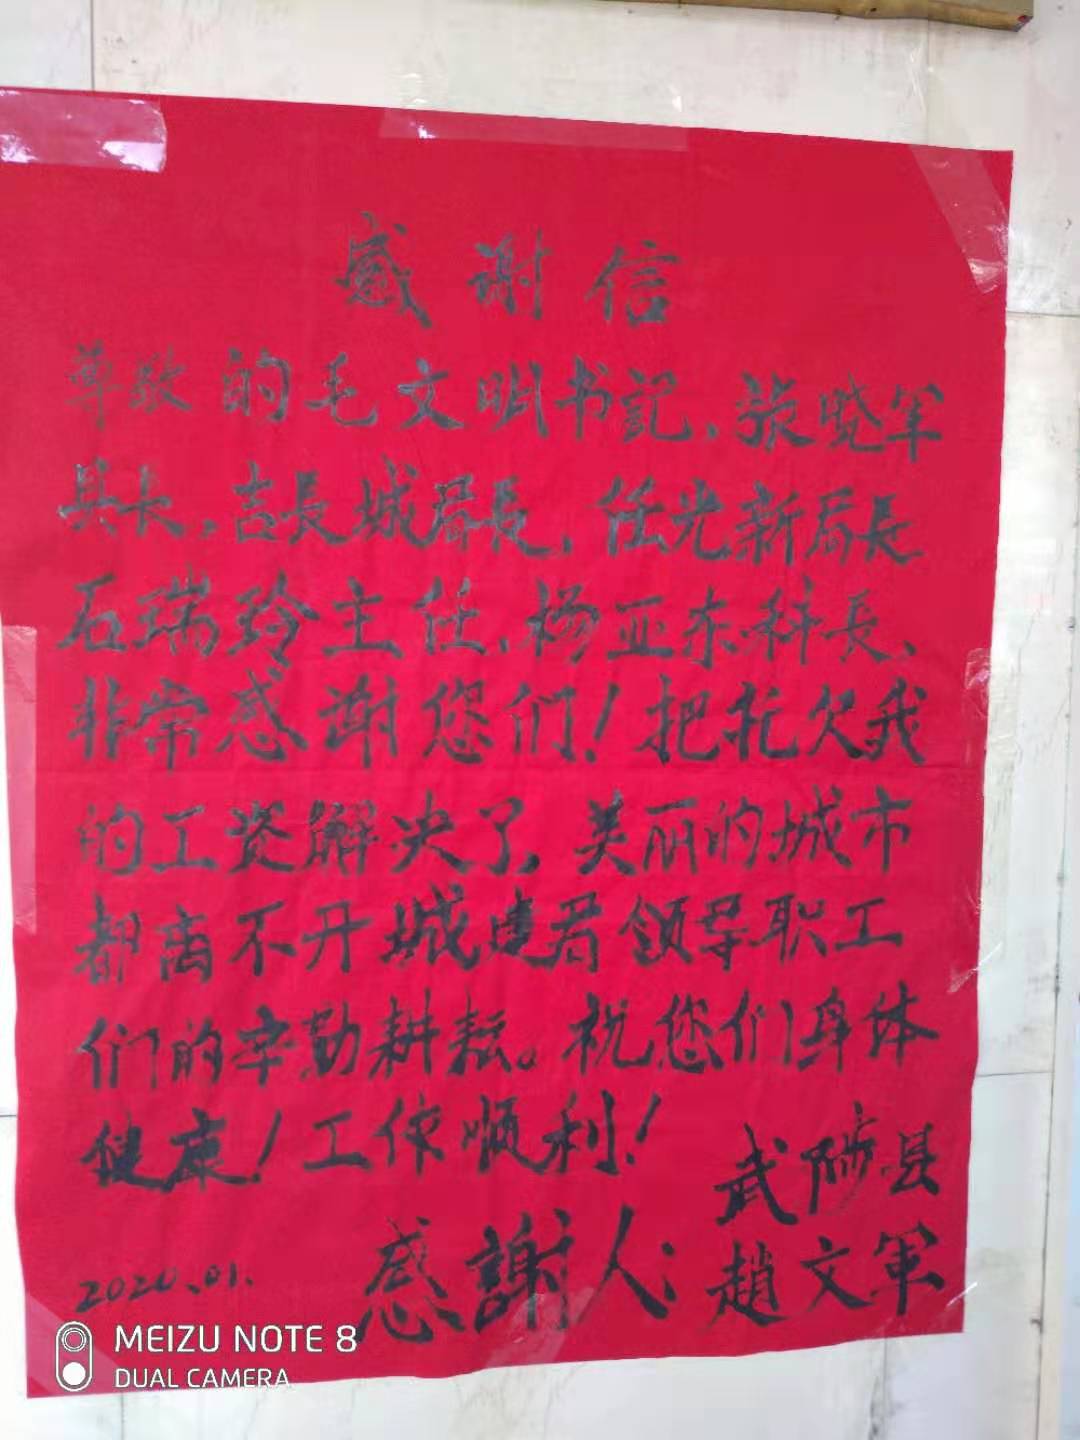 感谢信
尊敬的毛文明书記、張晓军
县长、吉長城局長、任光新局長
石瑞玲主任、杨亚东科長、
非常感谢您们！把扥欠我
的工资解决了，美丽的城市
都离不开城建局领导职工
们的辛勤耕耘。祝您们身体
健康！工作顺利！
武陟县
感謝人：趙文軍
2020.01.
MEIZU NOTE 8
DUAL CAMERA